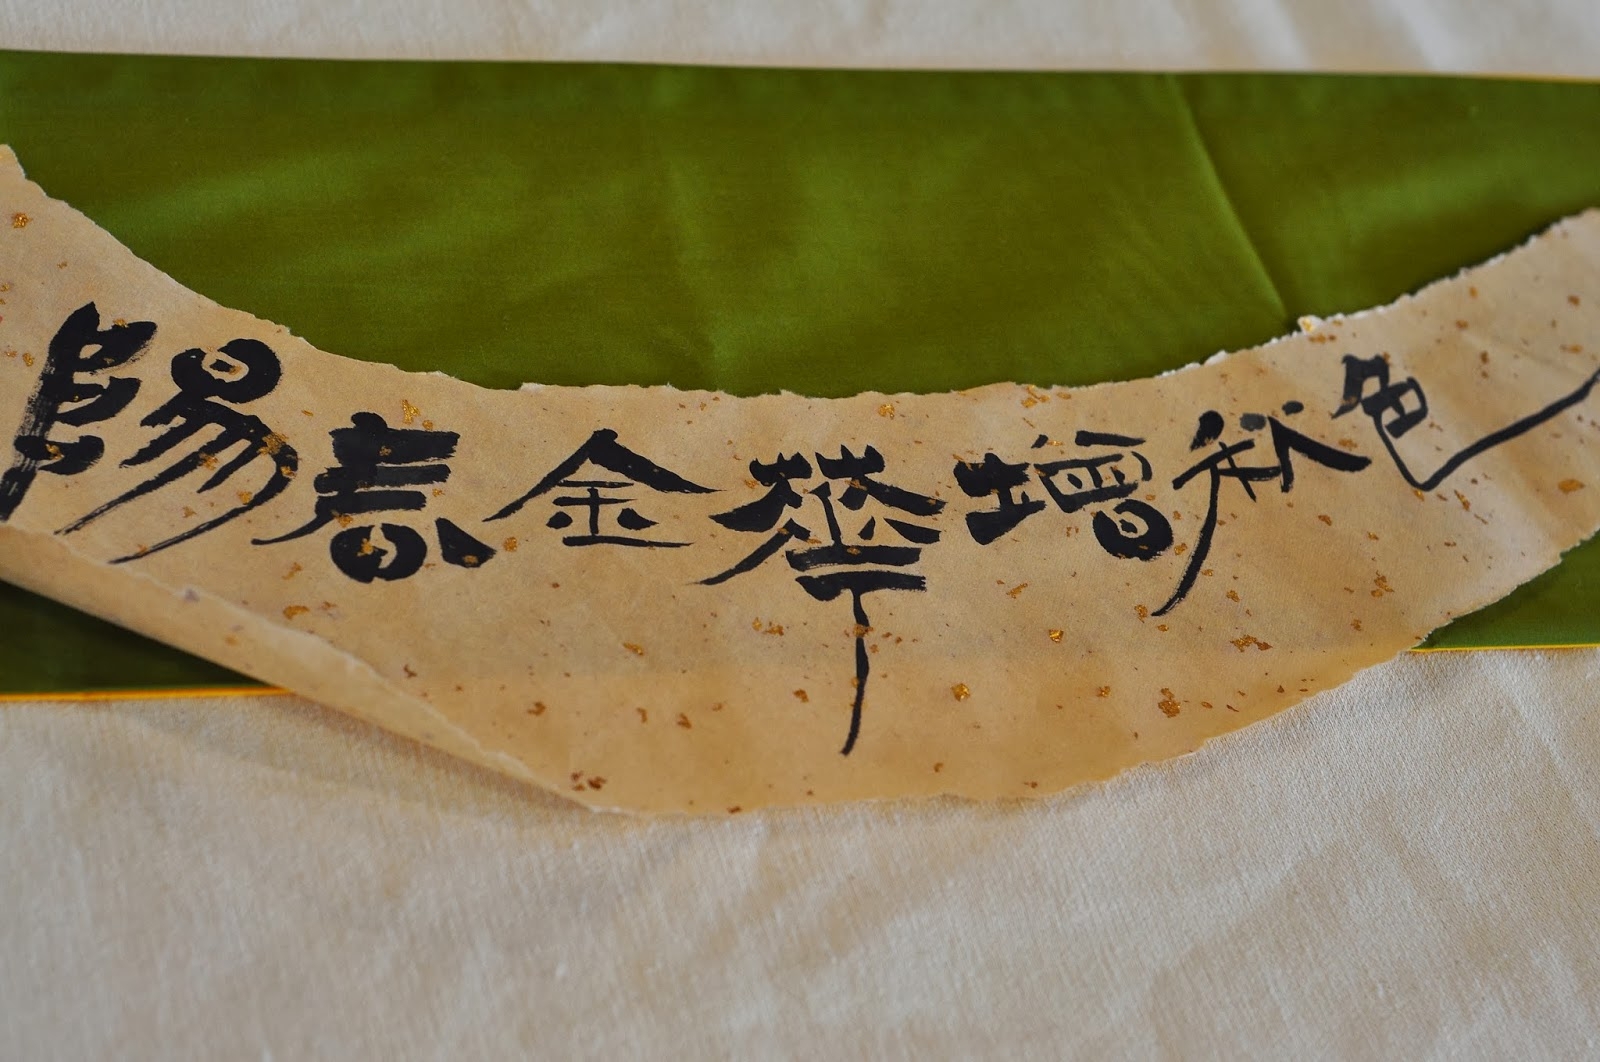 陽春金華增秋色